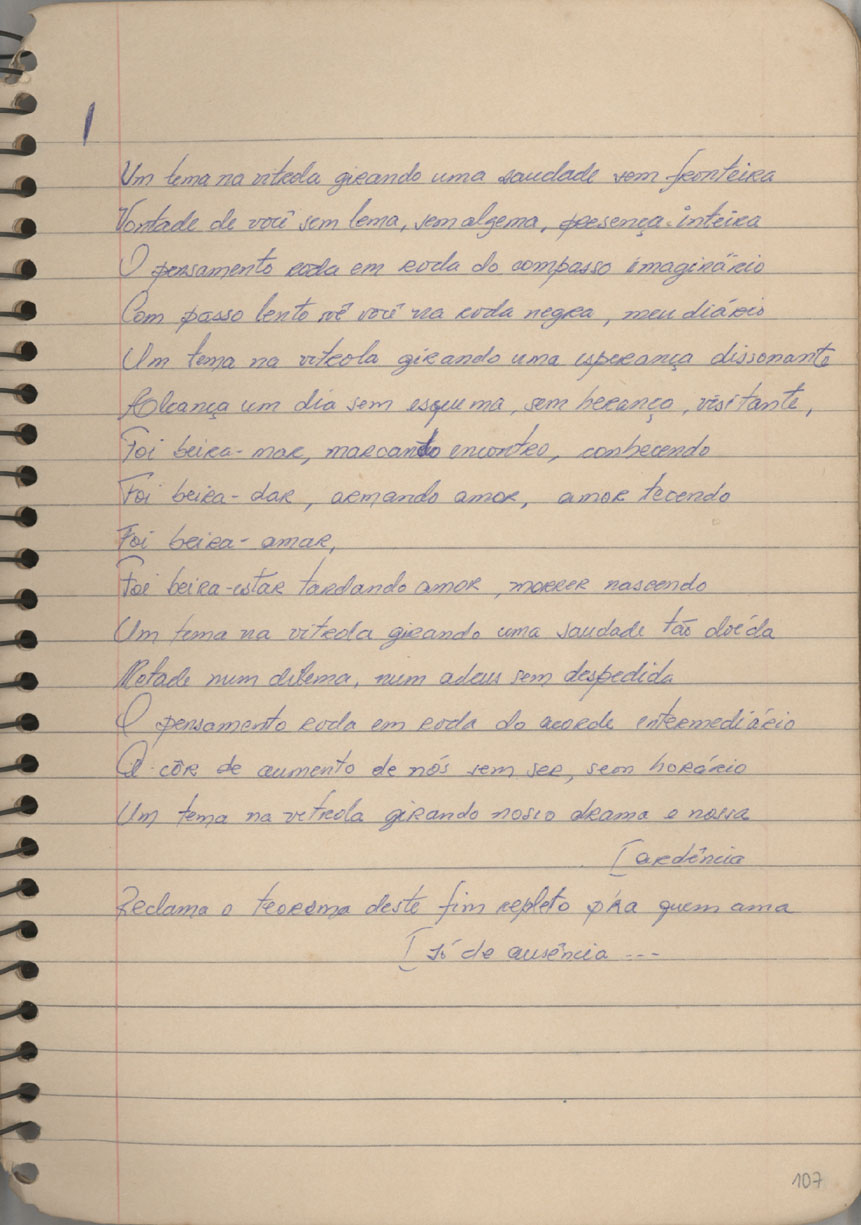 1
Um tema na vitrola girando uma saudade sem fronteira
Vontade de você sem lema, sem algema, presença inteira
O pensamento roda em roda do compasso imaginário
Com passo lento vê você na roda negra, meu diário
Um tema na vitrola girando uma esperança dissonante
Alcança um dia sem esquema, sem herança, visitante,
Foi beira-mar, marcando encontro, conhecendo
Foi beira-dar, armando amor, amor tecendo
Foi beira-amar,
Foi beira-estar tardando amor, morrer nascendo
Um tema na vitrola girando uma saudade tão doída
Metade num dilema, num adeus sem despedida
O pensamento roda em roda do acorde intermediário
A côr de aumento de nós sem ser, sem horário
Um tema na vitrola girando nosso drama e nossa
[ardência
Reclama o teorema deste fim repleto p'ra quem ama
[só de ausência ...
107